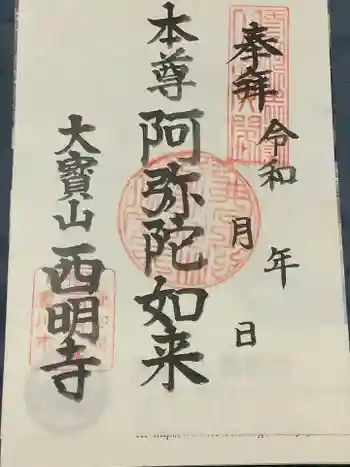 奉拜
令和 年
月 日
本尊 阿弥陀如来
大寳山 西明寺